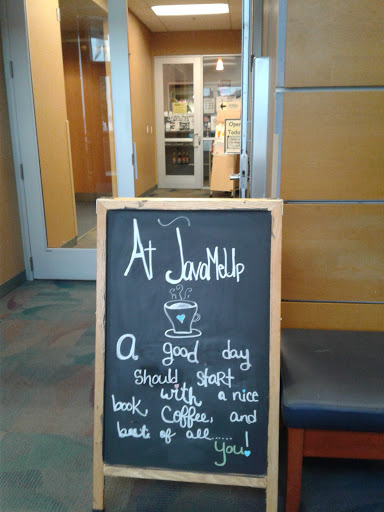 At JavaMeUp
a good day
should start
with a nice
book, coffee, and
best of all......
you!
Open
Today